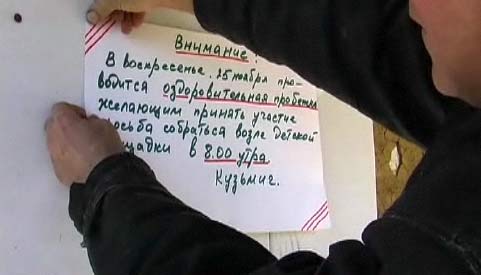 Внимание!
В воскресенье, 25 ноября про-
водится оздоровительная пробежка
желающим принять участие
просьба собраться возле детской
площадки в 8.00 утра
Кузьмич.